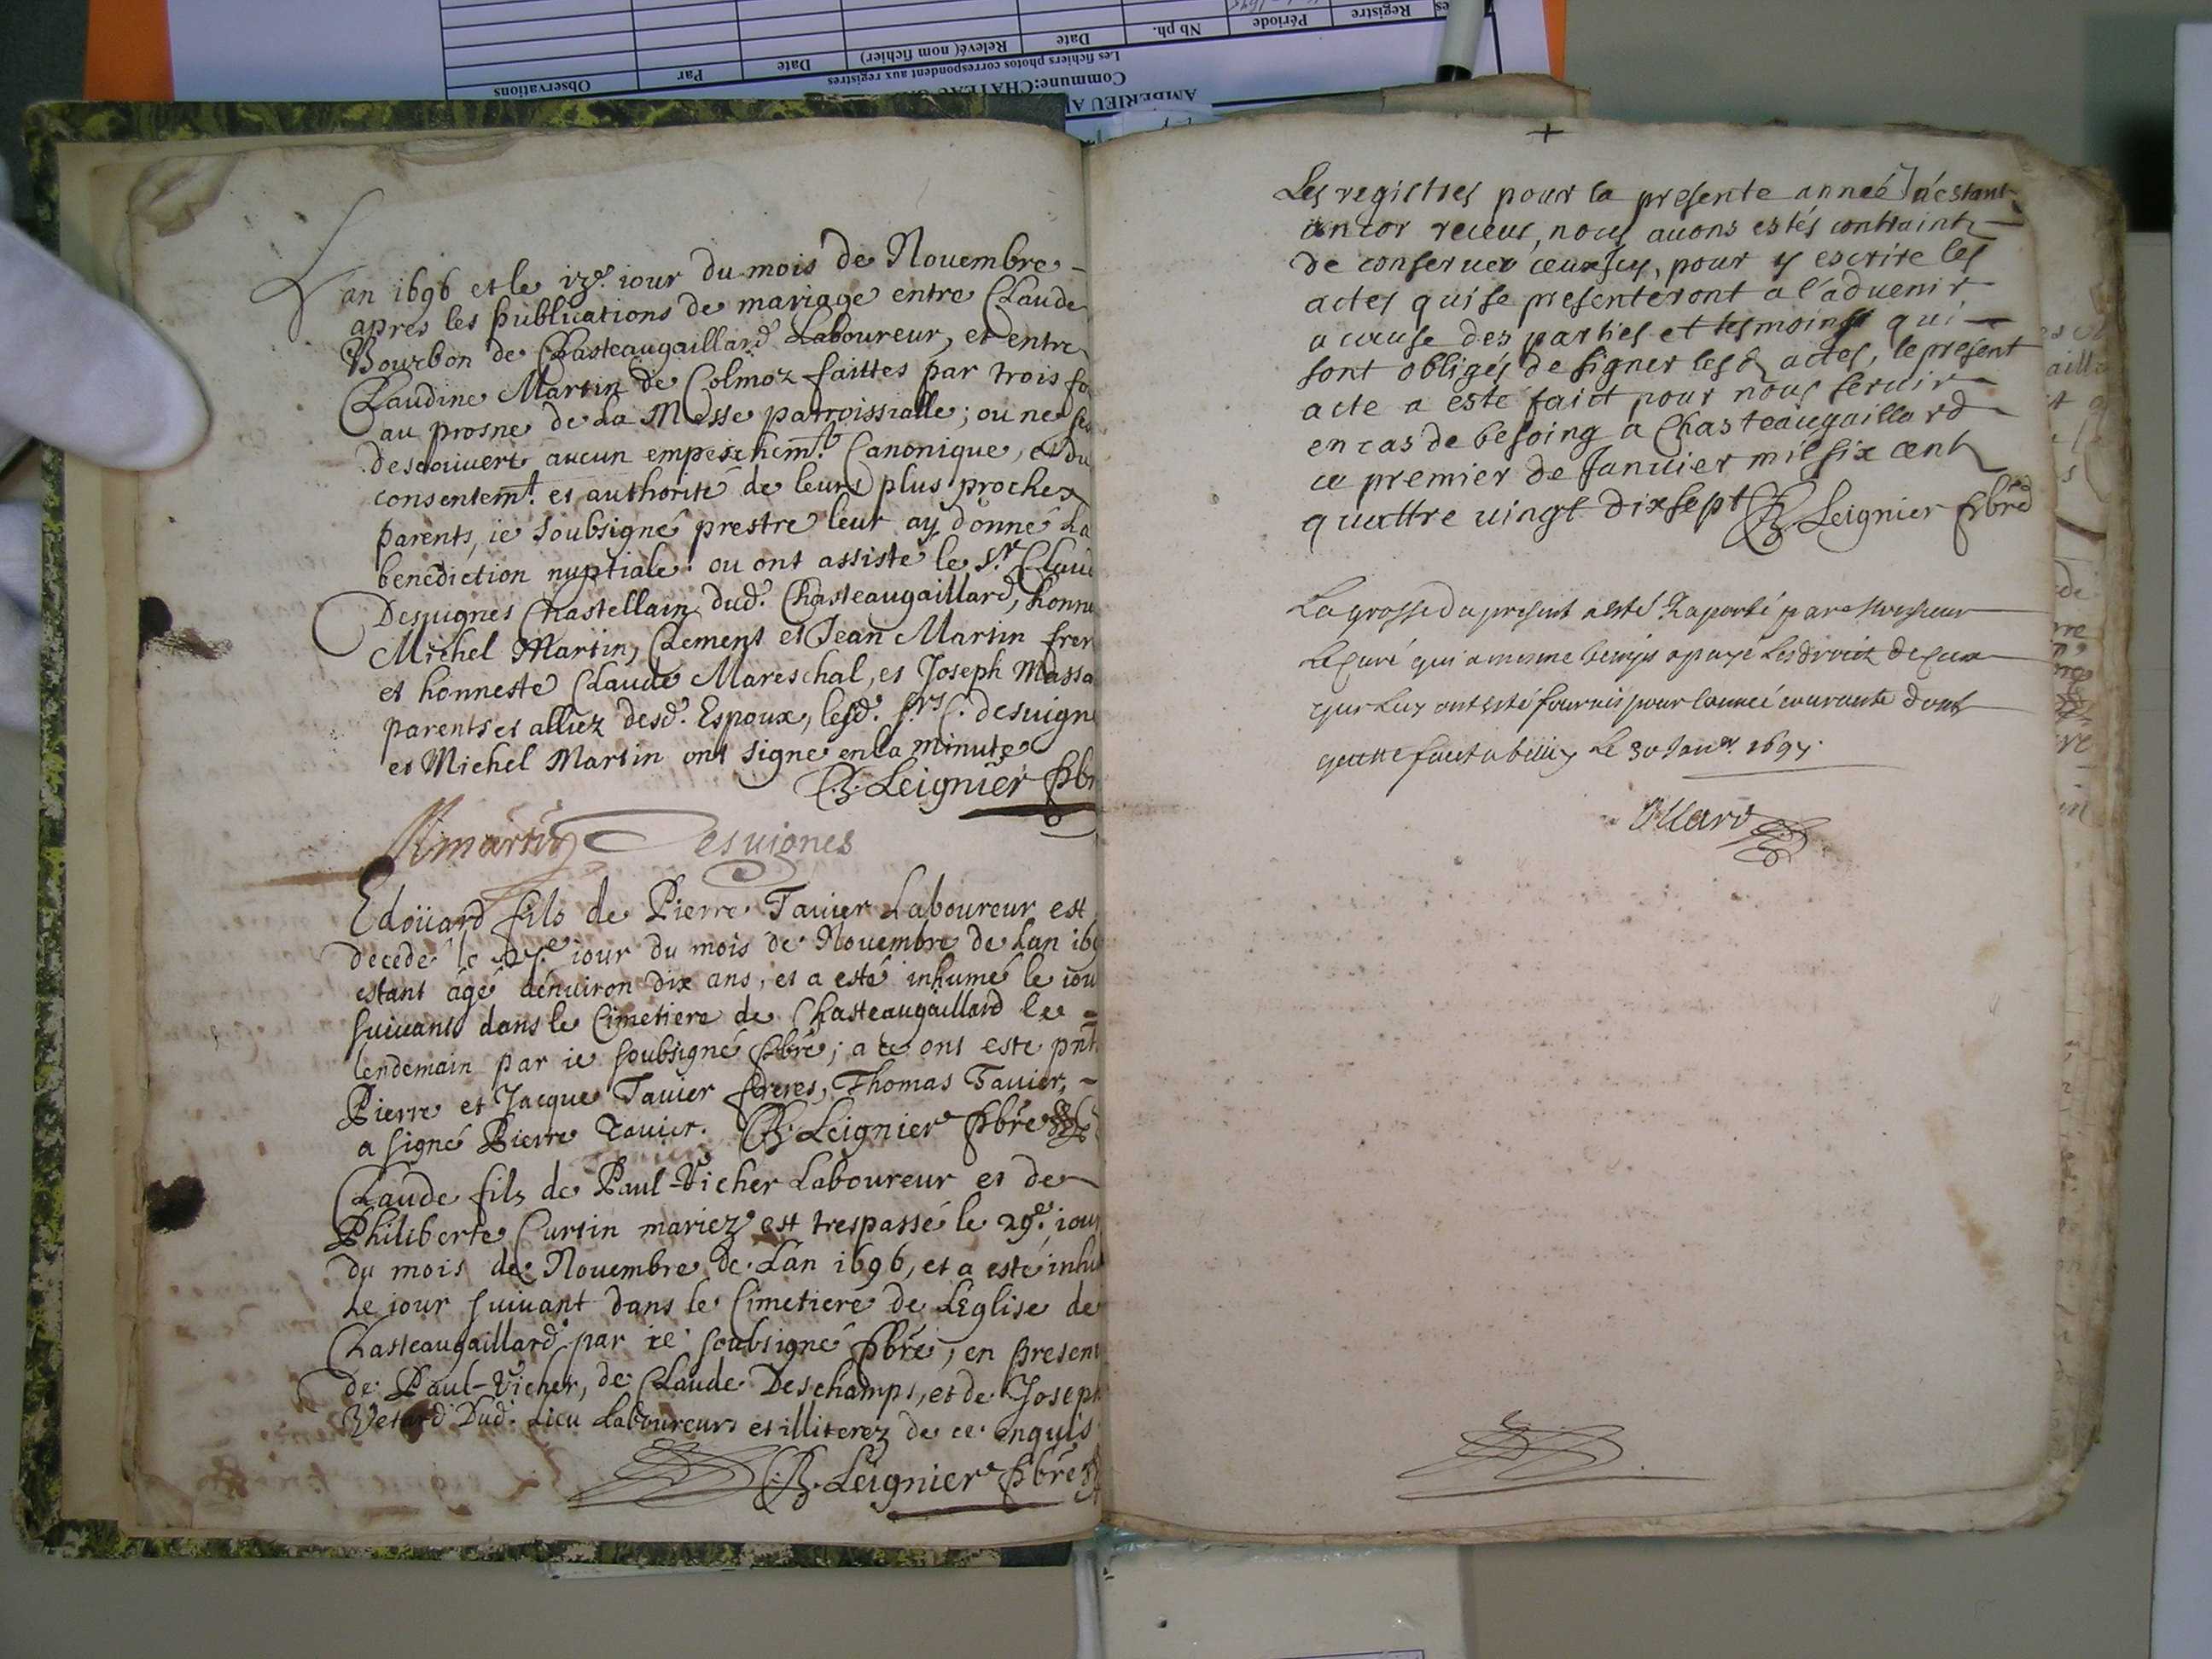 Observations
Par
Date
Relevé( nom fichier)
Date
Nb ph.
Période
Registre
Les fichiers photos correspondent aux registres
Commune:CHATEAU
AMBERIEU
Lan 1696 et le iour du mois de Nouembre
apres les publications de mariage entre Claude
Bourbon de Chasteaugaillard Laboureur, et entre
Claudine Martin de Colmoz faittes par trois fo
au prosne de La Messe parroissialle; ou ne ses
descouuert aucun empeschemt. Canonique, et du
consentemt. et authorité de leurs plus proches
parents, ie soubsigné prestre leur ay donné La
benediction nuptiale: ou ont assisté le Sr. Clau
Desuignes Chastellain dud. Chasteaugaillard, honne
Michel Martin, Clement et Jean Martin frer
et honneste Claude Mareschal, et Joseph Massa
parents et alliez desd. Espoux, lesd. Srs C. desuigne
et Michel Martin ont signe en la minute
C.B. Leignier pbr
M martin Desuignes
Edoüard fils de Pierre Tauier Laboureur est
decedé le 27e iour du mois de Nouembre de Lan 169
estant âgé denuiron dix ans, et a esté inhumé le iou
suiuant dans le Cimetiere de Chasteaugaillard le
lendemain par ie soubsigné pbre; a ce ont este pnt
Pierre et Jacque Tauier freres, Thomas Tauier,
a signé Pierre Tauier. C.B. Leignier pbre
Claude fils de Paul-Vicher Laboureur et de
Philiberte Curtin mariez est trespassé le 29e. iour
du mois de Nouembre de Lan 1696, et a esté inhu
Le iour suiuant dans le Cimetiere de LEglise de
Chasteaugaillard par ie soubsigné pbre, en presen
de Paul-Vicher, de Claude Deschamps, et de Joseph
dud. Lieu Laboureurs et illiterez de ce enquis
C.B. Leignier pbre
+
Les registres pour la presente anneé n'estant
ancor receus, nous auons estés contraints
de conseruer ceux cy, pour y escrire les
actes qui se presenteront a l'aduenir
a cause des parties et tesmoins qui
sont obligés de signer lesd actes, le present
acte a esté faict pour nous seruir
en cas de besoing a Chasteaugaillard
ce premier de Januier mil six cent
quattre uingt dix sept CB Leignier pbre
La grosse du present a esté Raporté par Monsieur
Le Curé qui a mesme temps a payé Les droict de ceux
qui Luy ont esté fournis pour lannée courante dont
quitte fait a belley Le 30 Janer. 1697.